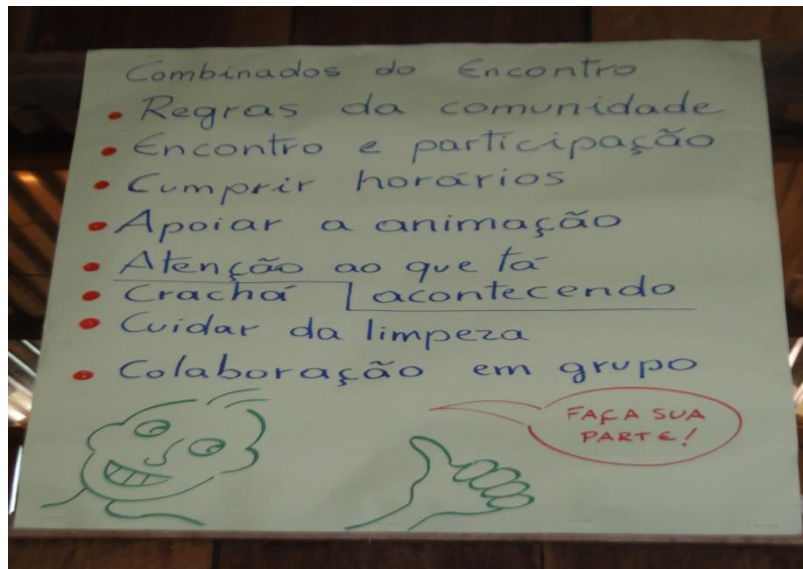 Combinados do Encontro
• Regras da comunidade
• Encontro e participação
• Cumprir horários
• Apoiar a animação
• Atenção ao que tá
acontecendo
• Crachá
• Cuidar da limpeza
• Colaboração em grupo
FAÇA SUA
PARTE!